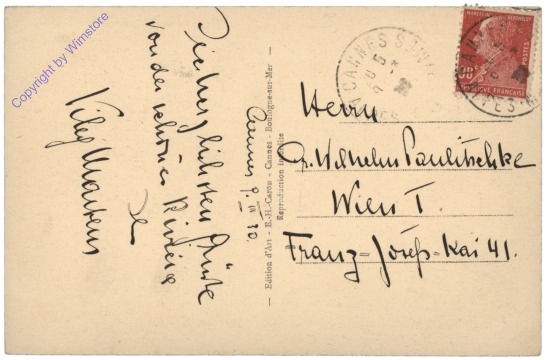 Copyright by Wimstore
Die herzlichsten Grüße
von der schönen Riviera
Cannes 9. III 30.
— Edition d'Art - E.-H. Caron - Cannes - Boulogne-sur-Mer —
Reproduction interdite
CANNES
MARCELIN BERTHELOT
POSTES
90c
RÉPUBLIQUE FRANÇAISE
Herrn
Dr. Wilhelm Paulitschke
Wien I.
Franz-Josefs-Kai 41.